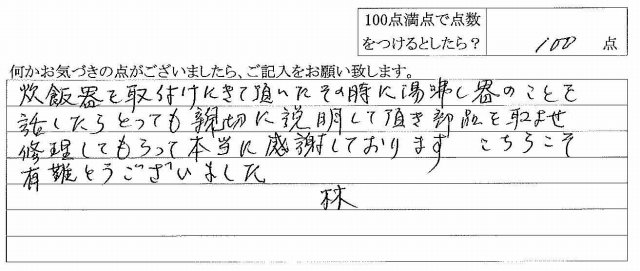 100点満点で点数
をつけるとしたら？
100 点
何かお気づきの点がございましたら、ご記入をお願い致します。
炊飯器を取付けにきて頂いたその時に湯沸し器のことを
話したらとっても親切に説明して頂き部品を取よせ
修理してもらって本当に感謝しております こちらこそ
有難とうございました
林